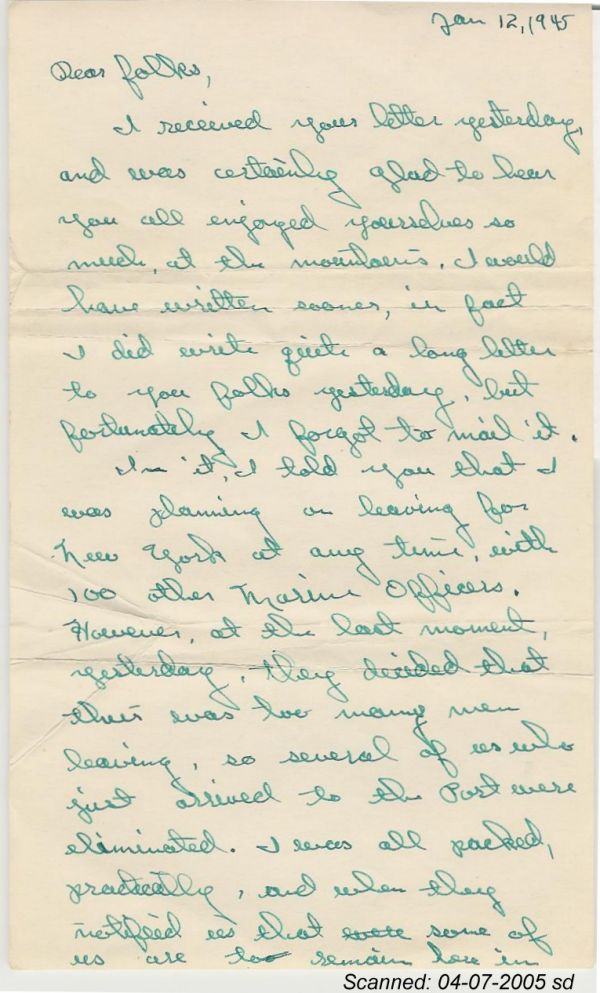 Jan 12, 1945
Dear folks,
I received your letter yesterday,
and was certainly glad to hear
you all enjoyed yourselves so
much, at the mountains. I would
have written sooner, in fact
I did write quite a long letter
to you folks yesterday, but
fortunately I forgot to mail it.
In it, I told you that I
was planning on leaving for
New York at any time, with
100 other Marine Officers.
However, at the last moment,
yesterday, they decided that
this was too many men
leaving, so several of us who
just arrived to the Post were
eliminated. I was all packed,
practically, and when they
notified us that some of
us are to remain here in
Scanned: 04-07-2005 sd